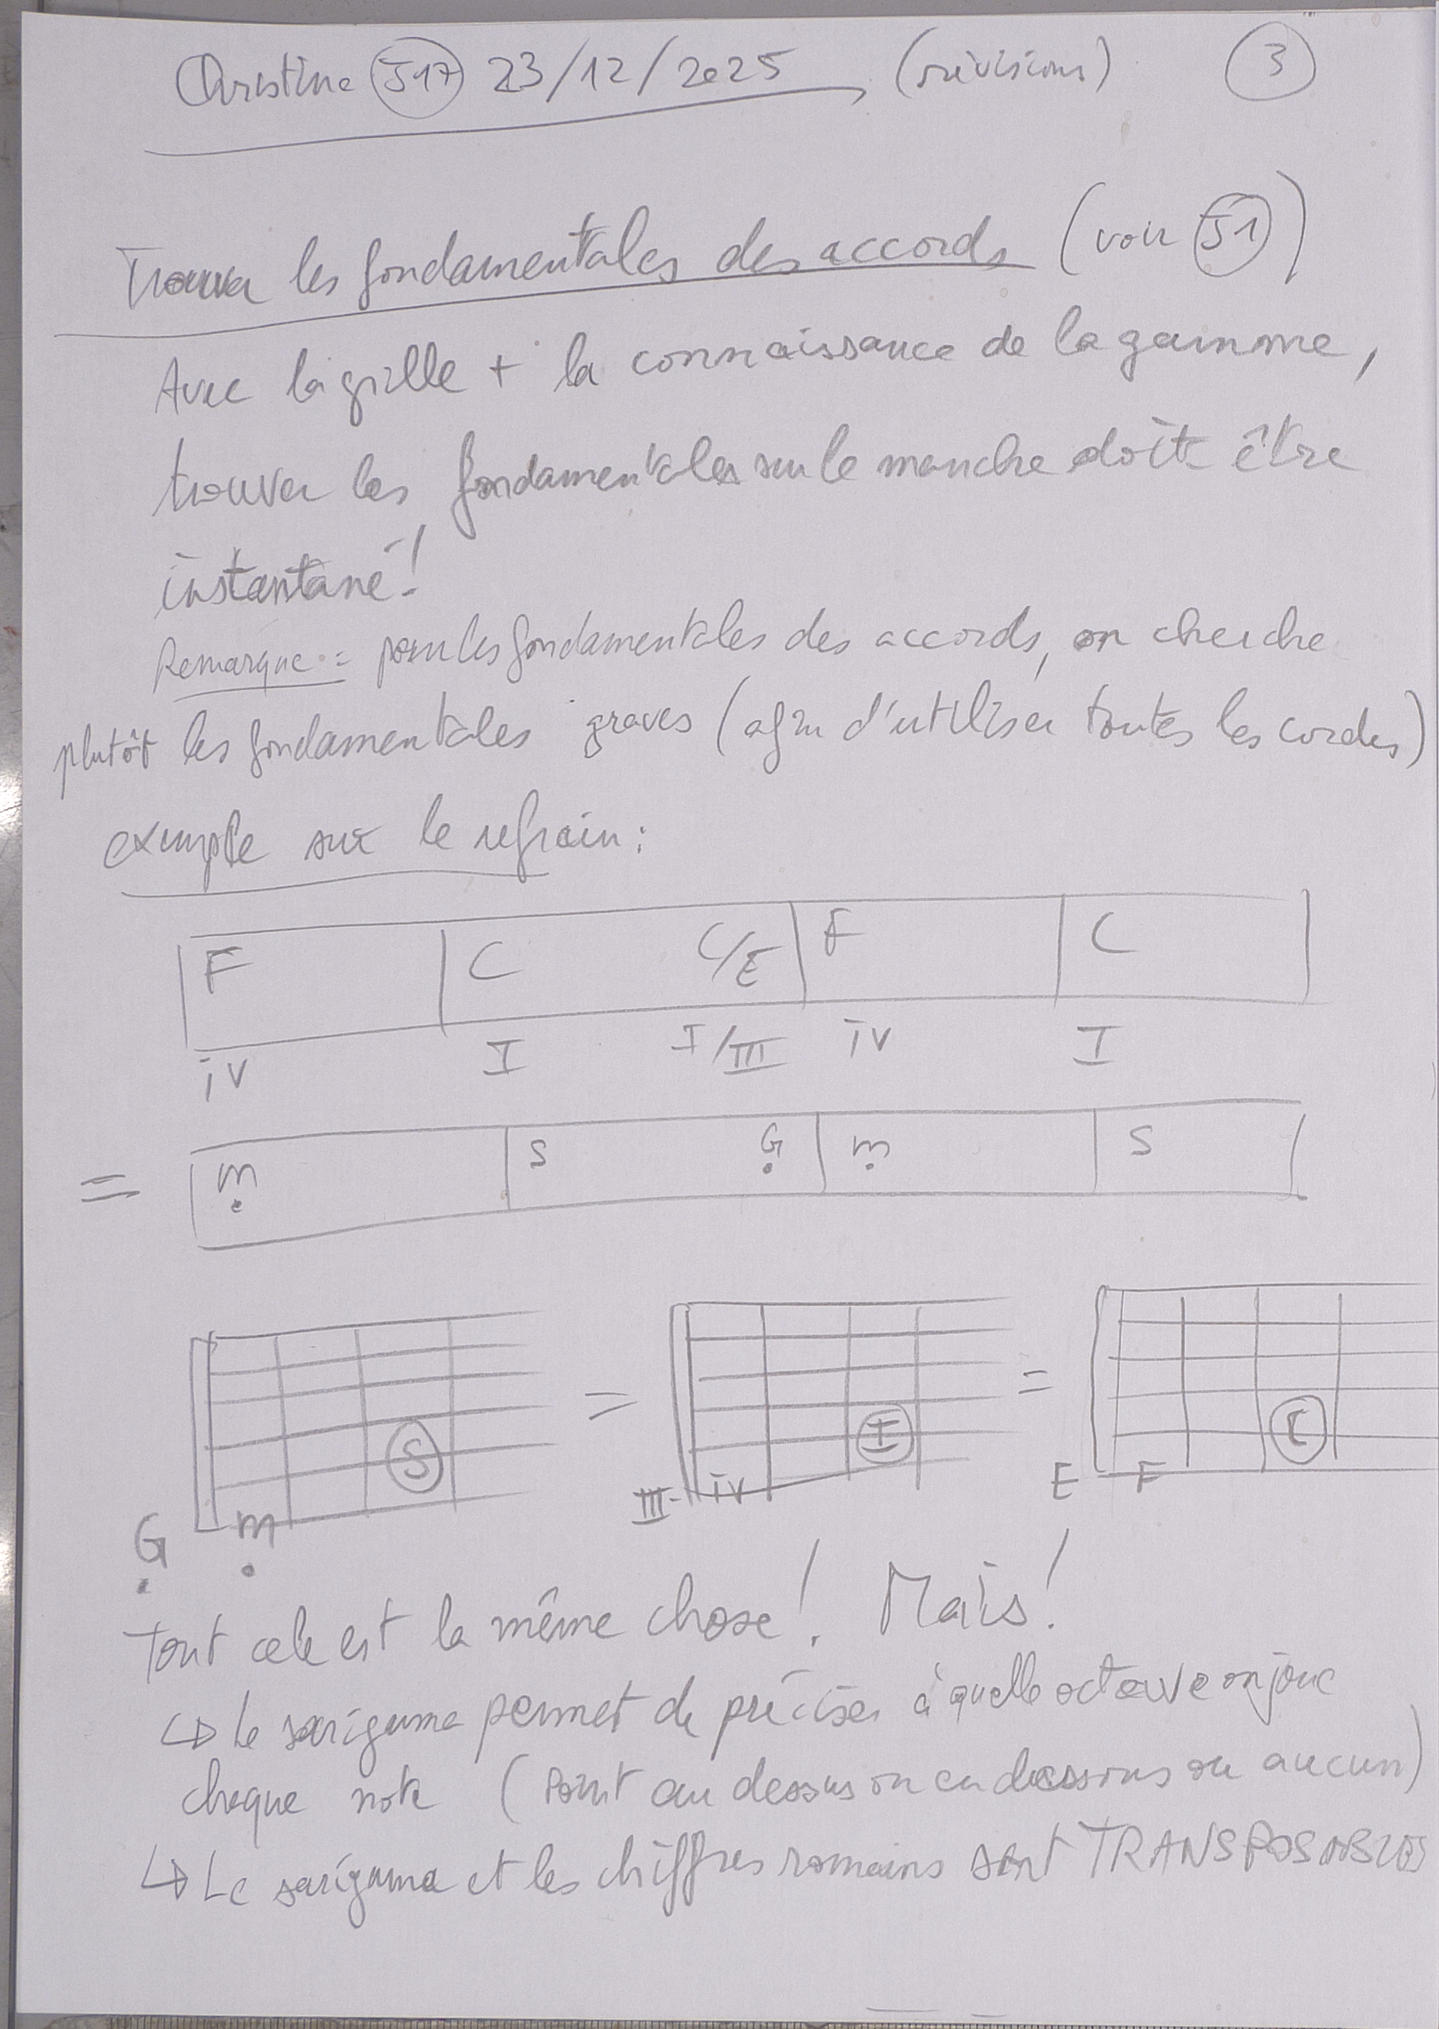 Christine J17 23/12/2025 (révisions) 3
Trouver les fondamentales des accords (voir J1)
Avec la grille + la connaissance de la gamme,
trouver les fondamentales sur le manche doit être
instantané !
Remarque : pour les fondamentales des accords, on cherche
plutôt les fondamentales graves (afin d'utiliser toutes les cordes)
exemple sur le refrain :
F C C/E F C
iv I I/III iv I
= ṃ S G̣ ṃ S
S = I = C
G̣ ṃ III iv E F
Tout cela est la même chose ! Mais !
↳ Le sarigama permet de préciser à quelle octave on joue
chaque note (point au dessus ou en dessous ou aucun)
↳ Le sarigama et les chiffres romains sont TRANSPOSABLES